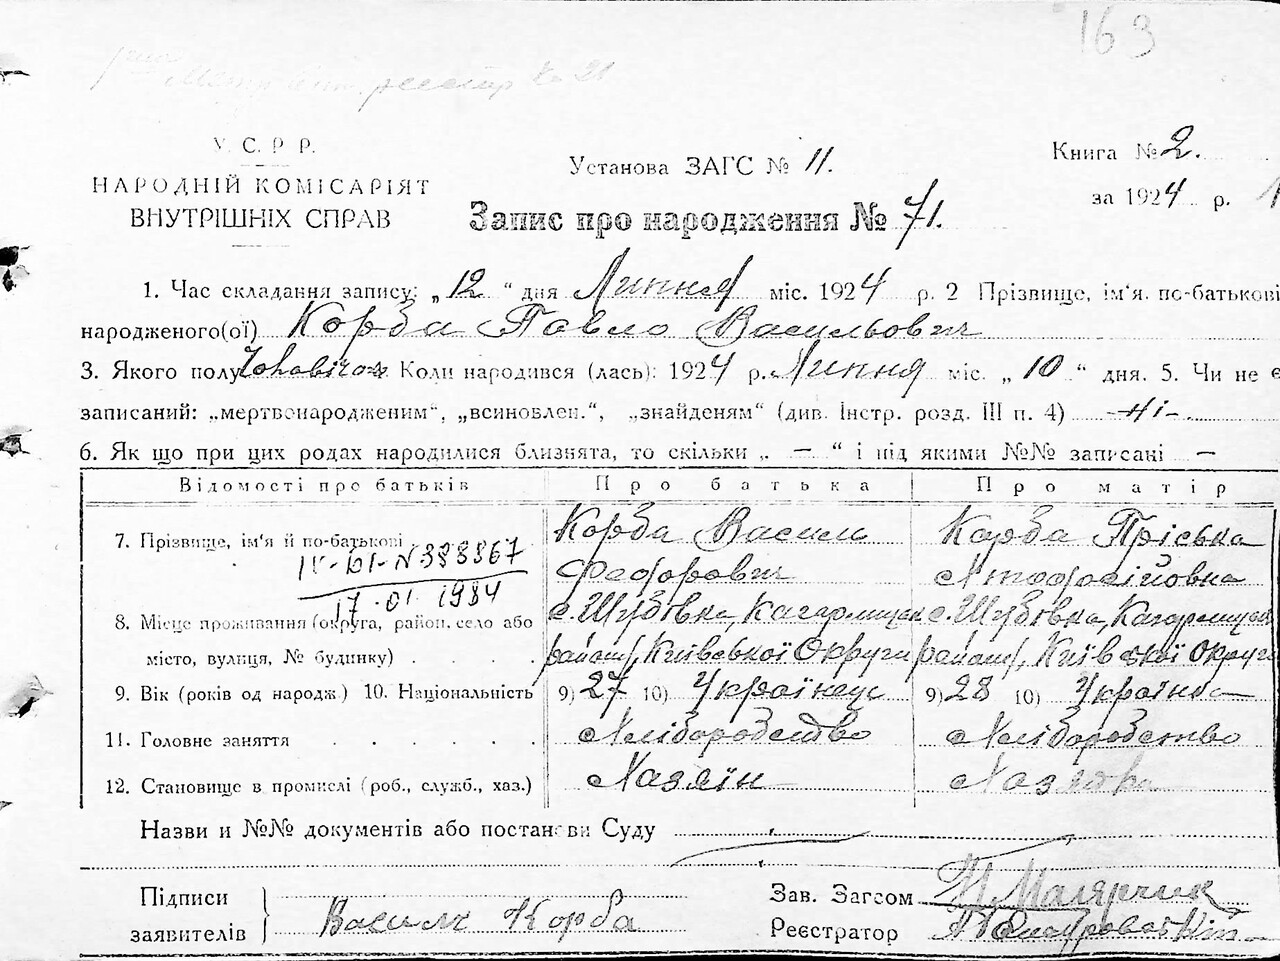 163
реєстр № 21
У. С. Р. Р.
НАРОДНІЙ КОМІСАРІЯТ
ВНУТРІШНІХ СПРАВ
Установа ЗАГС № 11.
Книга № 2.
за 1924 р.
Запис про народження № 71.
1. Час складання запису: „12 “ дня Липня міс. 1924 р. 2 Прізвище, ім'я. по-батькові
народженого(ої) Корба Павло Васильович
3. Якого полу Чоловічог Коли народився (лась): 1924 р. Липня міс. „ 10 “ дня. 5. Чи не є
записаний: „мертвонародженим“, „всиновлен.“, „знайденям“ (див. Інстр. розд. III п. 4) -ні-
6. Як що при цих родах народилися близнята, то скільки „ — “ і під якими №№ записані —
Відомості про батьків Про батька Про матір
7. Прізвище, ім'я й по-батькові Корба Василь Корба Пріська
Федорович
IV-БІ-N 388867
17.01.1984
8. Місце проживання (округа, район, село або с. Шубівка, Кагарлицьк с. Шубівка, Кагарлицьк
місто, вулиця, № будинку) району, Київської Округи району, Київської Округи
9. Вік (років од народж.) 10. Національність 9) 27 10) Українец 9) 28 10) Українка
11. Головне заняття Хліборобство Хліборобство
12. Становище в промислі (роб., служб., хаз.) Хазяїн Хазяйка
Назви и №№ документів або постанови Суду
Підписи
заявителів Василь Корба
Зав. Загсом Малярчик
Реєстратор